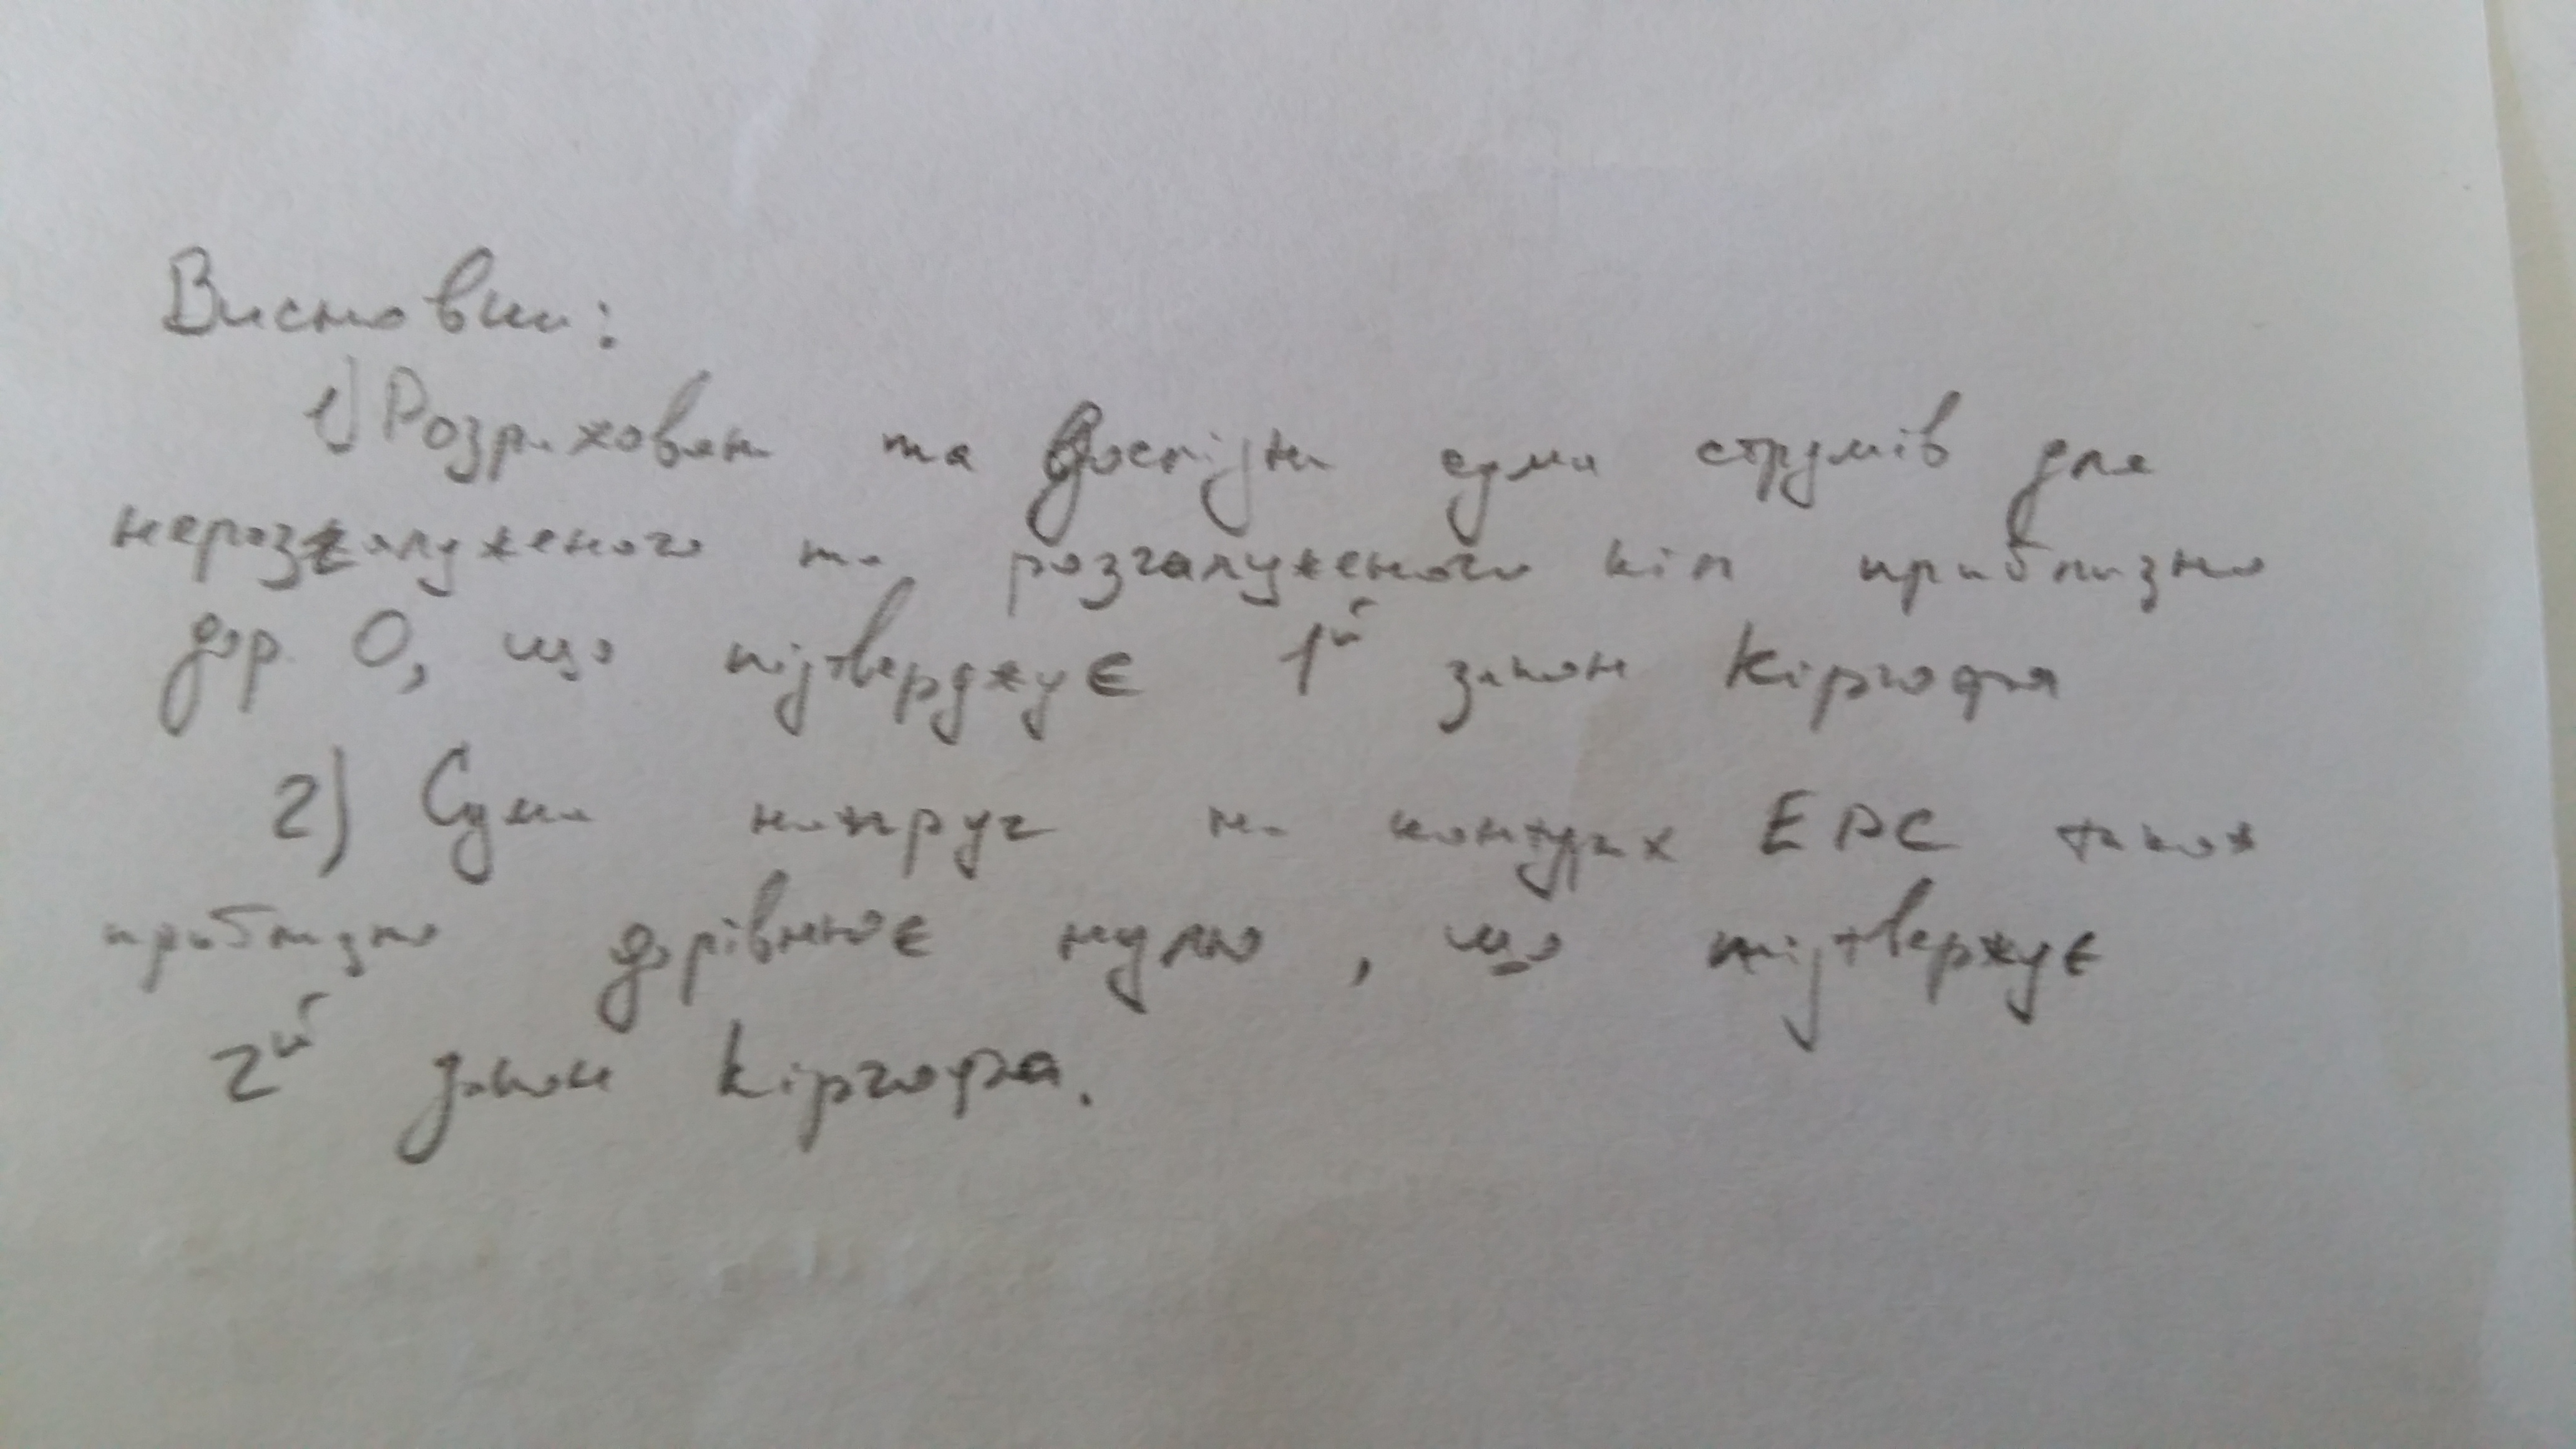 Висновки:
1) Розрахован та дослідн сума струмів для
нерозгалуженого та розгалуженого кіл приблизно
дор. 0, що підтверджує 1й закон Кіргофа
2) Сума напруг на контурах ЕРС також
приблизно дорівнює нулю, що підтвержує
2й закон Кіргофа.